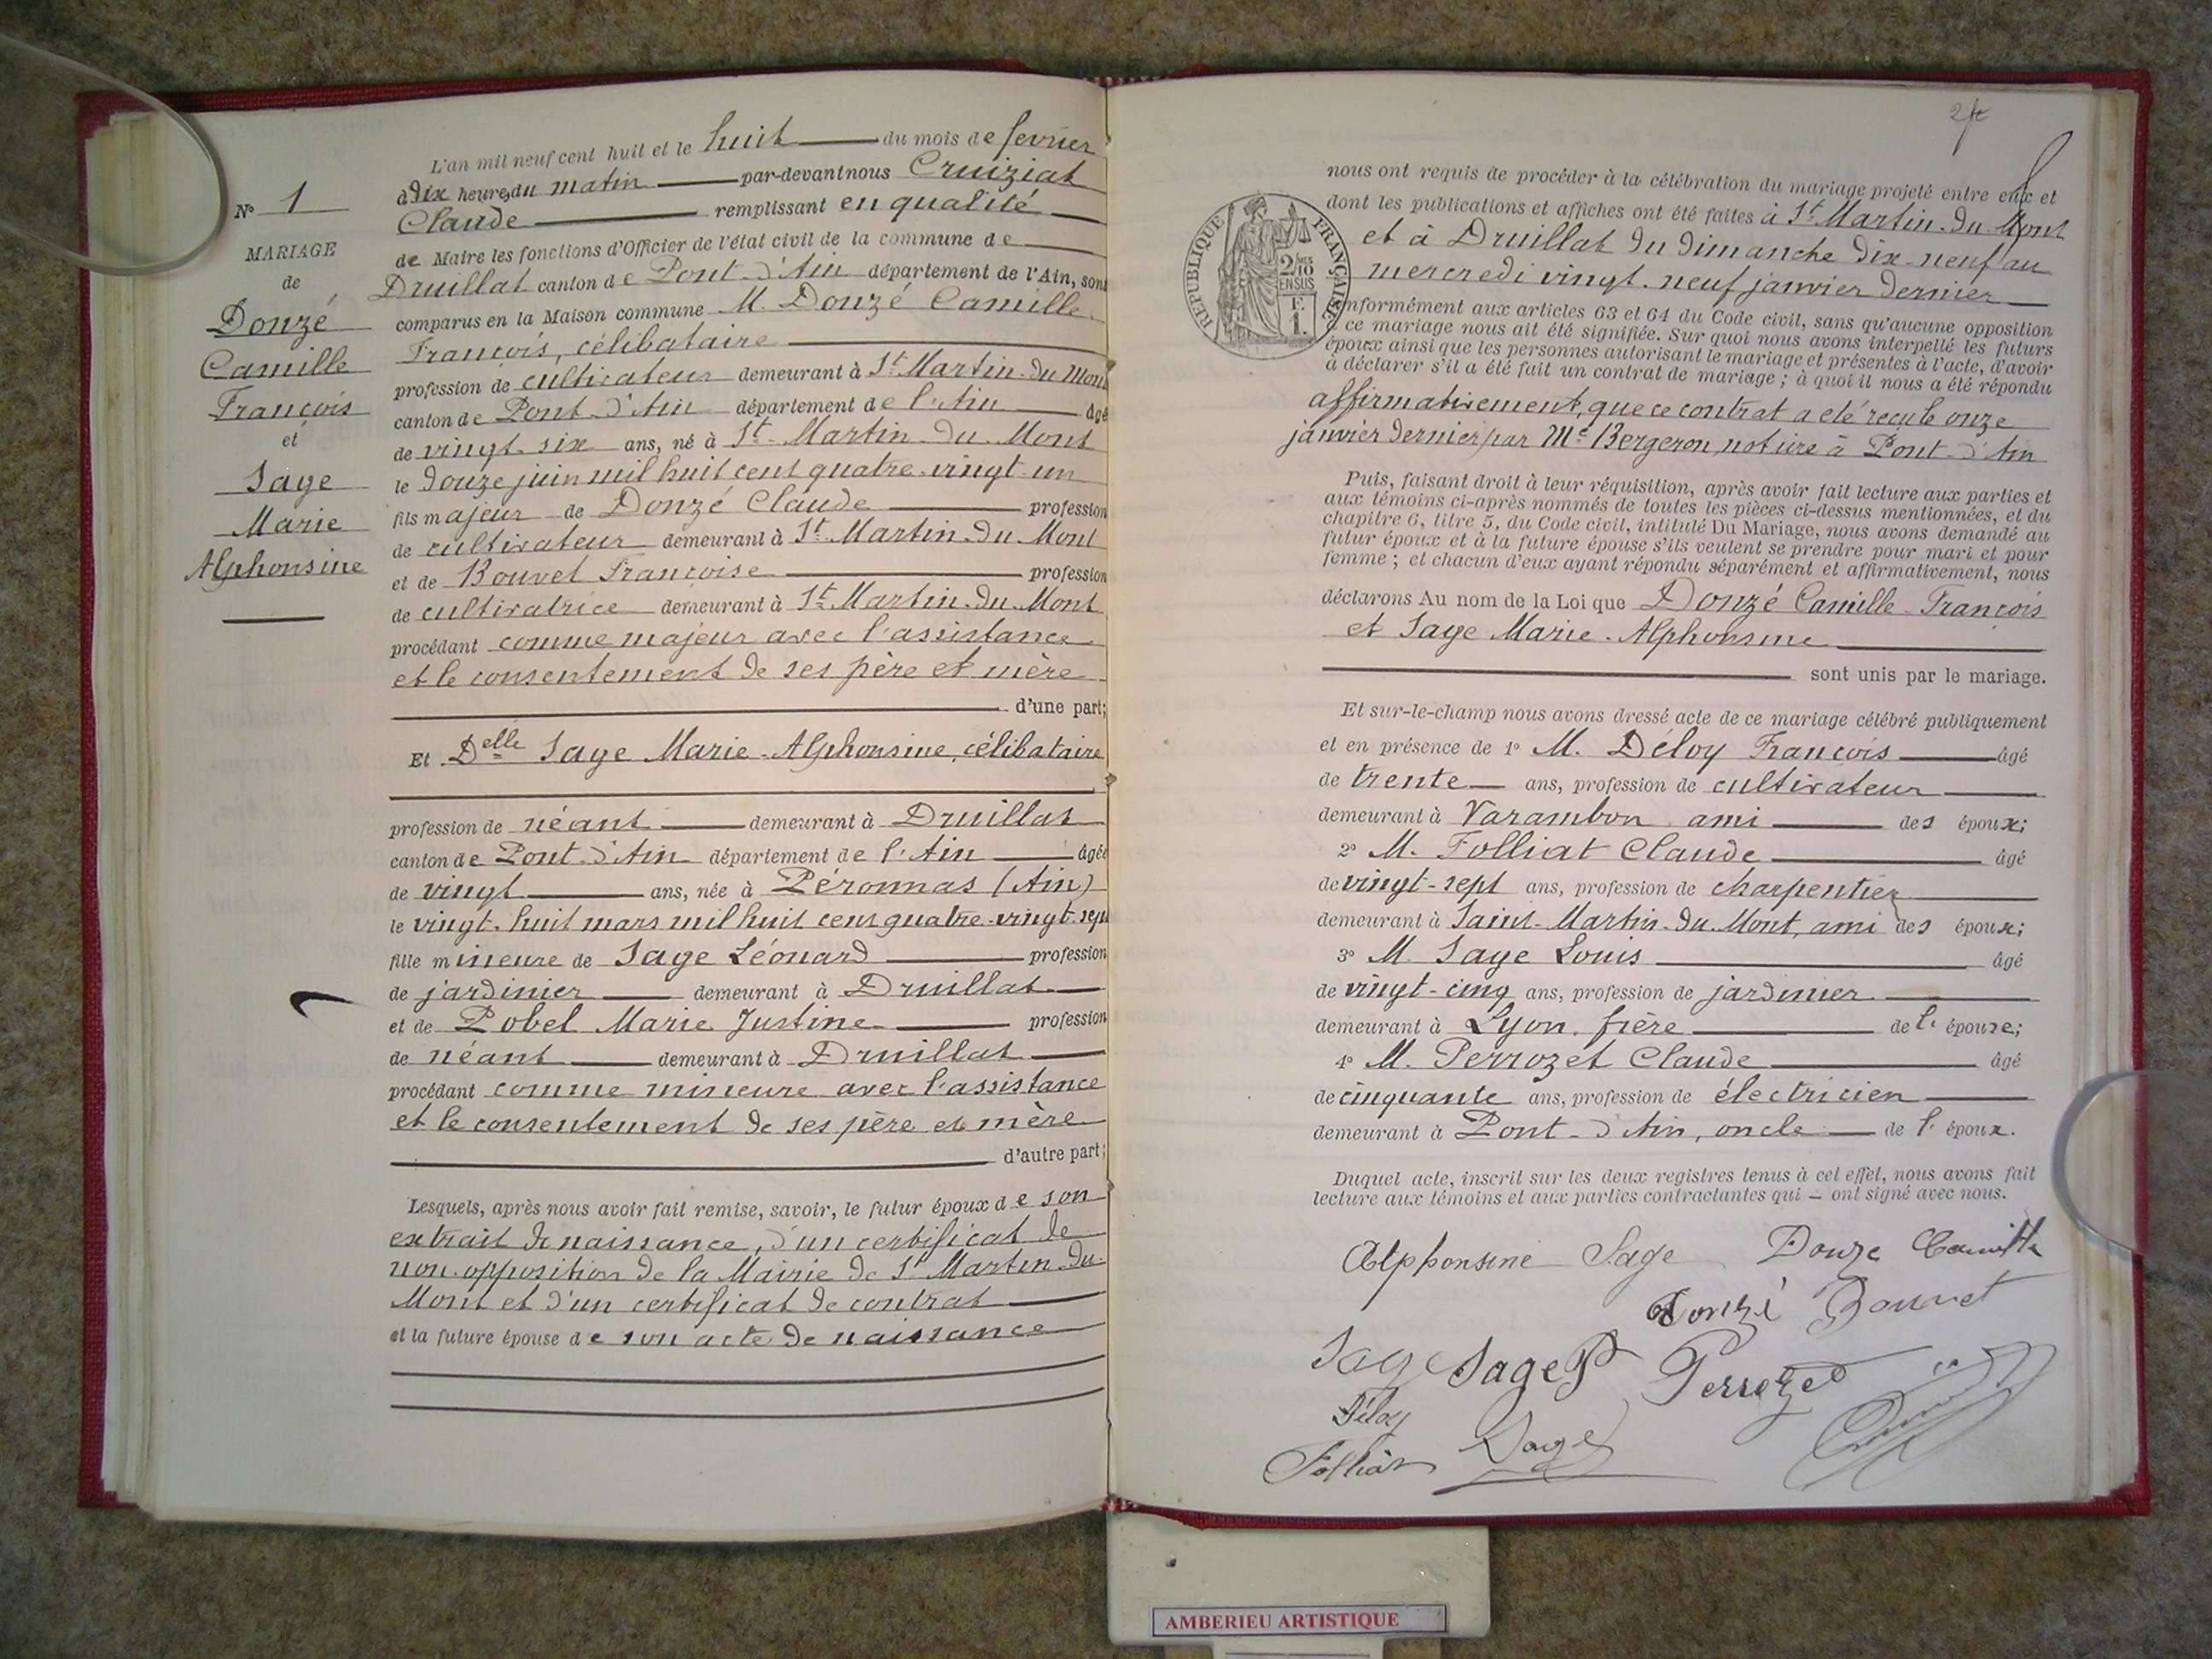 N° 1
MARIAGE
de
Donzé
Camille
François
et
Sage
Marie
Alphonsine
L'an mil neuf cent huit et le huit du mois de fevrier
à dix heures du matin par-devant nous Cruiziat
Claude remplissant en qualité
de Maire les fonctions d'Officier de l'état civil de la commune de
Druillat canton de Pont-d'Ain département de l'Ain, sont
comparus en la Maison commune M. Donzé Camille
François, célibataire
profession de cultivateur demeurant à St Martin-du-Mont
canton de Pont-d'Ain département de l'Ain âgé
de vingt-six ans, né à St-Martin-du-Mont
le douze juin mil huit cent quatre-vingt-un
fils majeur de Donzé Claude profession
de cultivateur demeurant à St-Martin-du-Mont
et de Bouvet Françoise profession
de cultivatrice demeurant à St-Martin-du-Mont
procédant comme majeur avec l'assistance
et le consentement de ses père et mère
d'une part;
Et Delle Sage Marie-Alphonsine, célibataire
profession de néant demeurant à Druillat
canton de Pont-d'Ain département de l'Ain âgée
de vingt ans, née à Péronnas (Ain)
le vingt-huit mars mil huit cent quatre-vingt-sept
fille mineure de Sage Léonard profession
de jardinier demeurant à Druillat
et de Pobel Marie Justine profession
de néant demeurant à Druillat
procédant comme mineure avec l'assistance
et le consentement de ses père et mère
d'autre part;
Lesquels, après nous avoir fait remise, savoir, le futur époux de son
extrait de naissance, d'un certificat de
non-opposition de la Mairie de St Martin-du-
Mont et d'un certificat de contrat
et la future épouse de son acte de naissance
2
nous ont requis de procéder à la célébration du mariage projeté entre eux et
dont les publications et affiches ont été faites à St-Martin-du-Mont
et à Druillat du dimanche dix-neuf au
mercredi vingt-neuf janvier dernier
RÉPUBLIQUE FRANÇAISE
2/10 EN SUS
F. 1.
conformément aux articles 63 et 64 du Code civil, sans qu'aucune opposition
à ce mariage nous ait été signifiée. Sur quoi nous avons interpellé les futurs
époux ainsi que les personnes autorisant le mariage et présentes à l'acte, d'avoir
à déclarer s'il a été fait un contrat de mariage; à quoi il nous a été répondu
affirmativement, que ce contrat a eté reçu le onze
janvier dernier par Me Bergeron notaire à Pont-d'Ain
Puis, faisant droit à leur réquisition, après avoir fait lecture aux parties et
aux témoins ci-après nommés de toutes les pièces ci-dessus mentionnées, et du
chapitre 6, titre 5, du Code civil, intitulé Du Mariage, nous avons demandé au
futur époux et à la future épouse s'ils veulent se prendre pour mari et pour
femme; et chacun d'eux ayant répondu séparément et affirmativement, nous
déclarons Au nom de la Loi que Donzé Camille-François
et Sage Marie-Alphonsine
sont unis par le mariage.
Et sur-le-champ nous avons dressé acte de ce mariage célébré publiquement
et en présence de 1° M. Déloy François âgé
de trente ans, profession de cultivateur
demeurant à Varambon ami des époux;
2° M. Folliat Claude âgé
de vingt-sept ans, profession de charpentier
demeurant à Saint-Martin-du-Mont, ami des époux;
3° M. Sage Louis âgé
de vingt-cinq ans, profession de jardinier
demeurant à Lyon, frère de l'épouse;
4° M. Perrozet Claude âgé
de cinquante ans, profession de électricien
demeurant à Pont-d'Ain, oncle de l'époux.
Duquel acte, inscrit sur les deux registres tenus à cel effet, nous avons fait
lecture aux témoins et aux parties contractantes qui ont signé avec nous.
Alphonsine Sage Donze Camille
Donzé Bouvet
Sage Sage P Perrozet
Déloy
Folliat Sage
AMBERIEU ARTISTIQUE